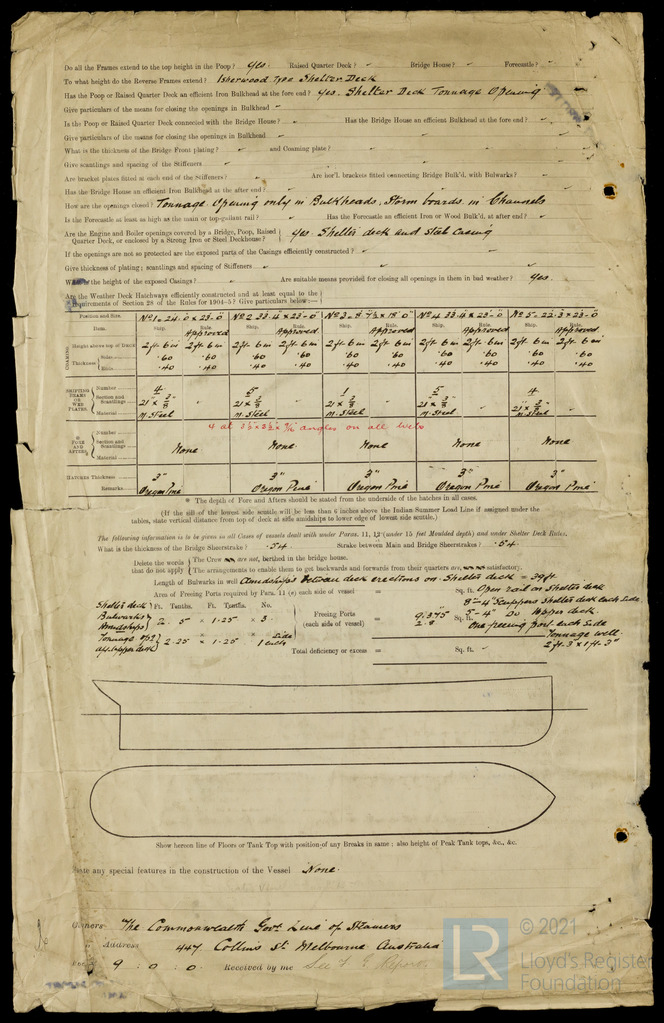 Do all the Frames extend to the top height in the Poop? Yes. Raised Quarter Deck? " Bridge House? " Forecastle? "
To what height do the Reverse Frames extend? Isherwood Type Shelter Deck
Has the Poop or Raised Quarter Deck an efficient Iron Bulkhead at the fore end? Yes. Shelter Deck Tonnage Opening
Give particulars of the means for closing the openings in Bulkhead "
Is the Poop or Raised Quarter Deck connected with the Bridge House? " Has the Bridge House an efficient Bulkhead at the fore end? "
Give particulars of the means for closing the openings in Bulkhead "
What is the thickness of the Bridge Front plating? " and Coaming plate? "
Give scantlings and spacing of the Stiffeners "
Are bracket plates fitted at each end of the Stiffeners? " Are hor'l. brackets fitted connecting Bridge Bulk'd. with Bulwarks? "
Has the Bridge House an efficient Iron Bulkhead at the after end? "
How are the openings closed? Tonnage Opening only in Bulkheads, Storm boards in Channels
Is the Forecastle at least as high as the main or top-gallant rail? " Has the Forecastle an efficient Iron or Wood Bulk'd. at after end? "
Are the Engine and Boiler openings covered by a Bridge, Poop, Raised Quarter Deck, or enclosed by a Strong Iron or Steel Deckhouse? Yes Shelter deck and steel Casing
If the openings are not so protected are the exposed parts of the Casings efficiently constructed? "
Give thickness of plating; scantlings and spacing of Stiffeners "
What is the height of the exposed Casings? " Are suitable means provided for closing all openings in them in bad weather? Yes.
Are the Weather Deck Hatchways efficiently constructed and at least equal to the
Requirements of Section 28 of the Rules for 1904-5? Give particulars below:—
Position and Size. No 1 - 24-0 x 23-0 No 2 33-4 x 23-0 No 3 - 8-7½ x 18-0" No 4 33-4 x 23-0 No 5 - 22-3 x 23-0
Item. Ship. Rule. Approved Ship. Rule. Approved Ship. Rule. Approved Ship. Rule. Approved Ship. Rule. Approved
COAMING Height above top of Deck 2ft 6in 2ft 6in 2ft 6in 2ft 6in 2ft 6in 2ft 6in 2ft 6in 2ft 6in 2ft 6in 2ft 6in
Thickness Sides .60 .60 .60 .60 .60 .60 .60 .60 .60 .60
Ends .40 .40 .40 .40 .40 .40 .40 .40 .40 .40
SHIFTING BEAMS OR WEB PLATES. Number 4 5 1 5 4
Section and Scantlings 21 x 3/8 " 21 x 3/8 " 21 x 3/8 " 21 x 3/8 " 21 x 3/8 "
Material M. Steel M. Steel M. Steel M. Steel M. Steel
4 at 3½ x 3½ x 7/16 angles on all webs
* FORE AND AFTERS Number
Section and Scantlings None None None None None
Material
HATCHES Thickness 3" 3" 3" 3" 3"
Remarks Oregon Pine Oregon Pine Oregon Pine Oregon Pine Oregon Pine
* The depth of Fore and Afters should be stated from the underside of the hatches in all cases.
(If the sill of the lowest side scuttle will be less than 6 inches above the Indian Summer Load Line if assigned under the
tables, state vertical distance from top of deck at side amidships to lower edge of lowest side scuttle.)
The following information is to be given in all Cases of vessels dealt with under Paras. 11, 12 (under 15 feet Moulded depth) and under Shelter Deck Rules.
What is the thickness of the Bridge Sheerstrake? .54 Strake between Main and Bridge Sheerstrakes? .54.
Delete the words that do not apply The Crew are not, berthed in the bridge house.
The arrangements to enable them to get backwards and forwards from their quarters are satisfactory.
Length of Bulwarks in well Amidships between deck erections on Shelter deck = 39ft
Area of Freeing Ports required by Para. 11 (e) each side of vessel = Sq. ft. Open rail on Shelter deck
Shelter deck Bulwarks Amidships Ft. Tenths. Ft. Tenths. No. 8"-4" Scuppers Shelter deck each side
2.5 x 1.25 x 3. Freeing Ports (each side of vessel) = 9.375 Sq. ft. 5-4" Do Upper deck.
2.8 One freeing port each side
Tonnage Opg aft. Upper deck 2.25 x 1.25 x 1 each Side Tonnage well.
Total deficiency or excess = Sq. ft. " 2ft 3" x 1ft 3"
Show hereon line of Floors or Tank Top with position of any Breaks in same; also height of Peak Tank tops, &c., &c.
State any special features in the construction of the Vessel None.
Owners The Commonwealth Govt. Line of Steamers
Address 447 Collins St. Melbourne Australia
9 : 0 : 0. Received by me See F. E. Report
LR © 2021
Lloyd's Register
Foundation